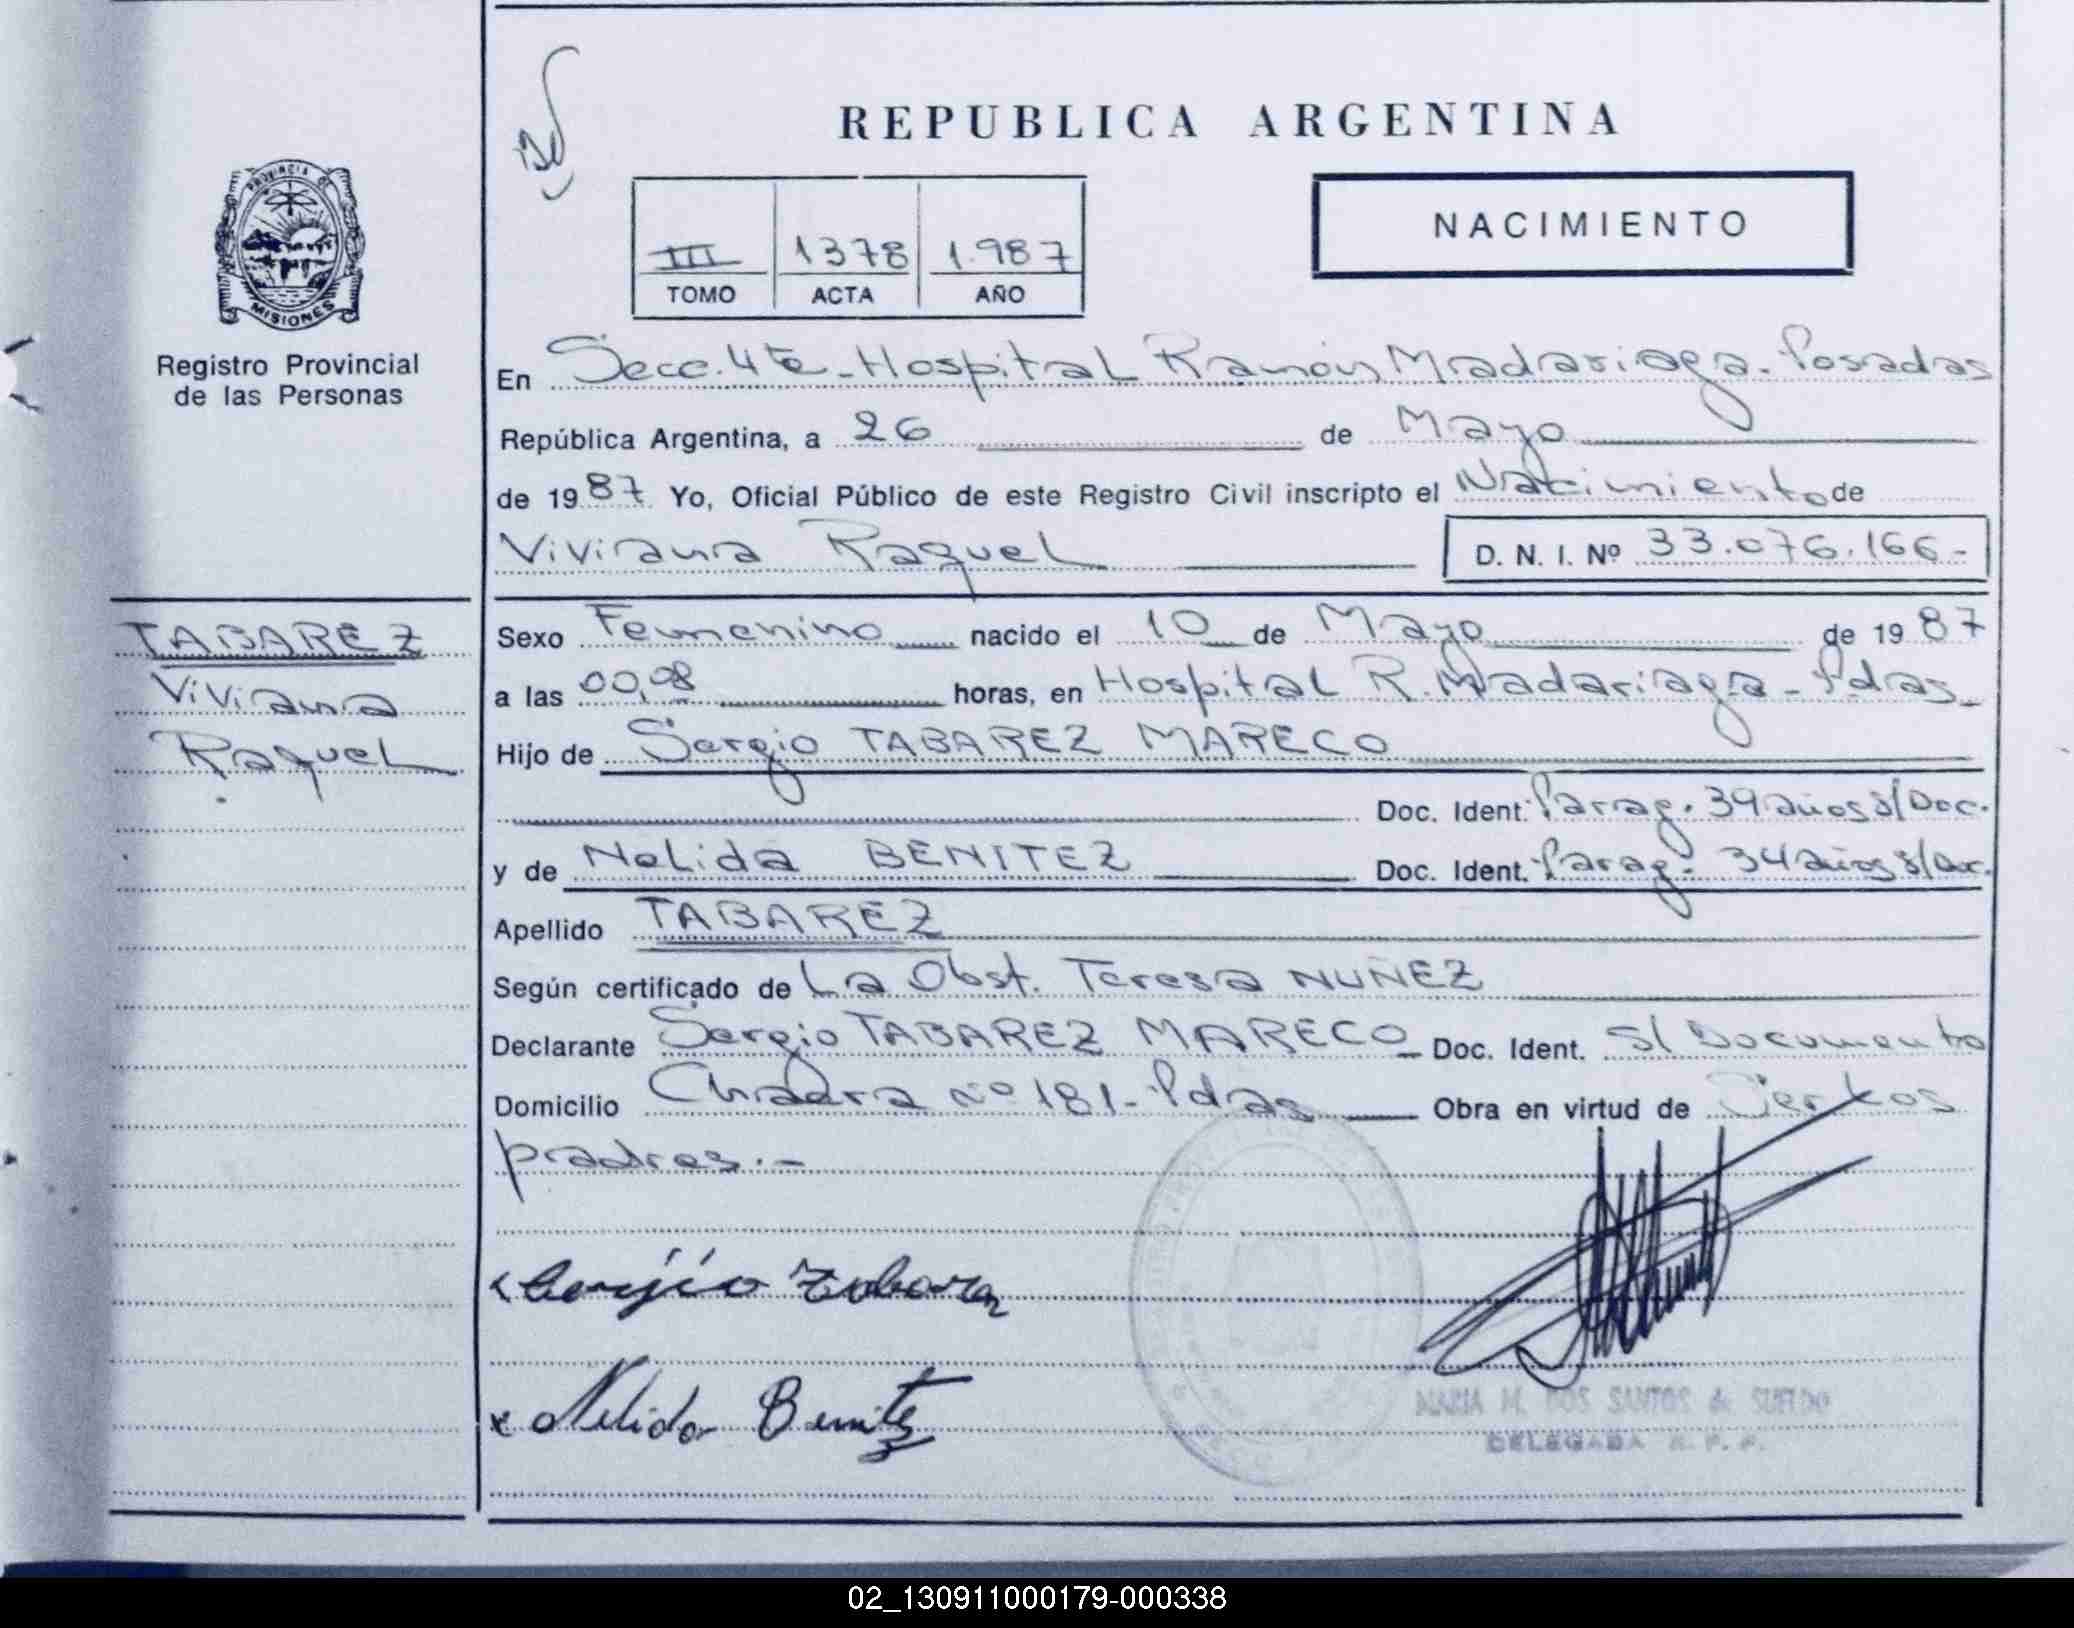 REPUBLICA ARGENTINA
NACIMIENTO
III 1378 1.987
TOMO ACTA AÑO
PROVINCIA DE
MISIONES
Registro Provincial
de las Personas
En Secc. 4ta - Hospital Ramón Madariaga. Posadas
República Argentina, a 26 de Mayo
de 1987 Yo, Oficial Público de este Registro Civil inscripto el Nacimiento de
Viviana Raquel D. N. I. Nº 33.076.166.-
TABAREZ
Viviana
Raquel
Sexo Femenino nacido el 10 de Mayo de 1987
a las 00,08 horas, en Hospital R. Madariaga - Pdas
Hijo de Sergio TABAREZ MARECO
Doc. Ident. Parag. 39 años s/Doc.
y de Nelida BENITEZ Doc. Ident. Parag. 34 años s/Doc.
Apellido TABAREZ
Según certificado de La Obst. Teresa NUÑEZ
Declarante Sergio TABAREZ MARECO Doc. Ident. S/ Documento
Domicilio Chacra nº 181 - Pdas Obra en virtud de Ser los
padres.-
Sergio Tabarez
Nelida Benitez
MARIA M. DOS SANTOS de SUELDO
DELEGADA R. P. P.
02_130911000179-000338